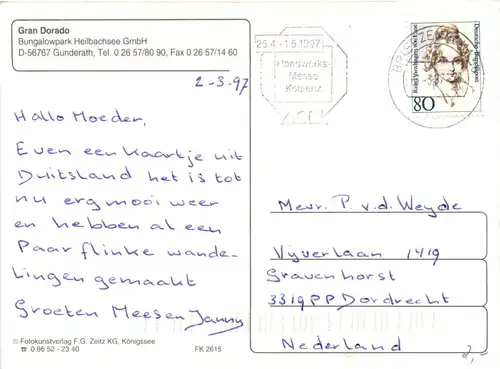 Gran Dorado
Bungalowpark Heilbachsee GmbH
D-56767 Gunderath, Tel. 0 26 57/80 90, Fax 0 26 57/14 60
2-3-97
Hallo Moeder,
Even een kaartje uit
Duitsland het is tot
nu erg mooi weer
en hebben al een
Paar flinke wande-
lingen gemaakt
Groeten Meesen Janny
© Fotokunstverlag F.G. Zeitz KG, Königssee
☎ 0 86 52 - 23 40
FK 2615
25.4.-1.5.1997
Handwerks-
Messe
Koblenz
BRIEFZEN
Deutsche Bundespost
80
Mevr. P. v.d. Weyde
Vijverlaan 1419
Gravenhorst
3319PP Dordrecht
Nederland
2,-